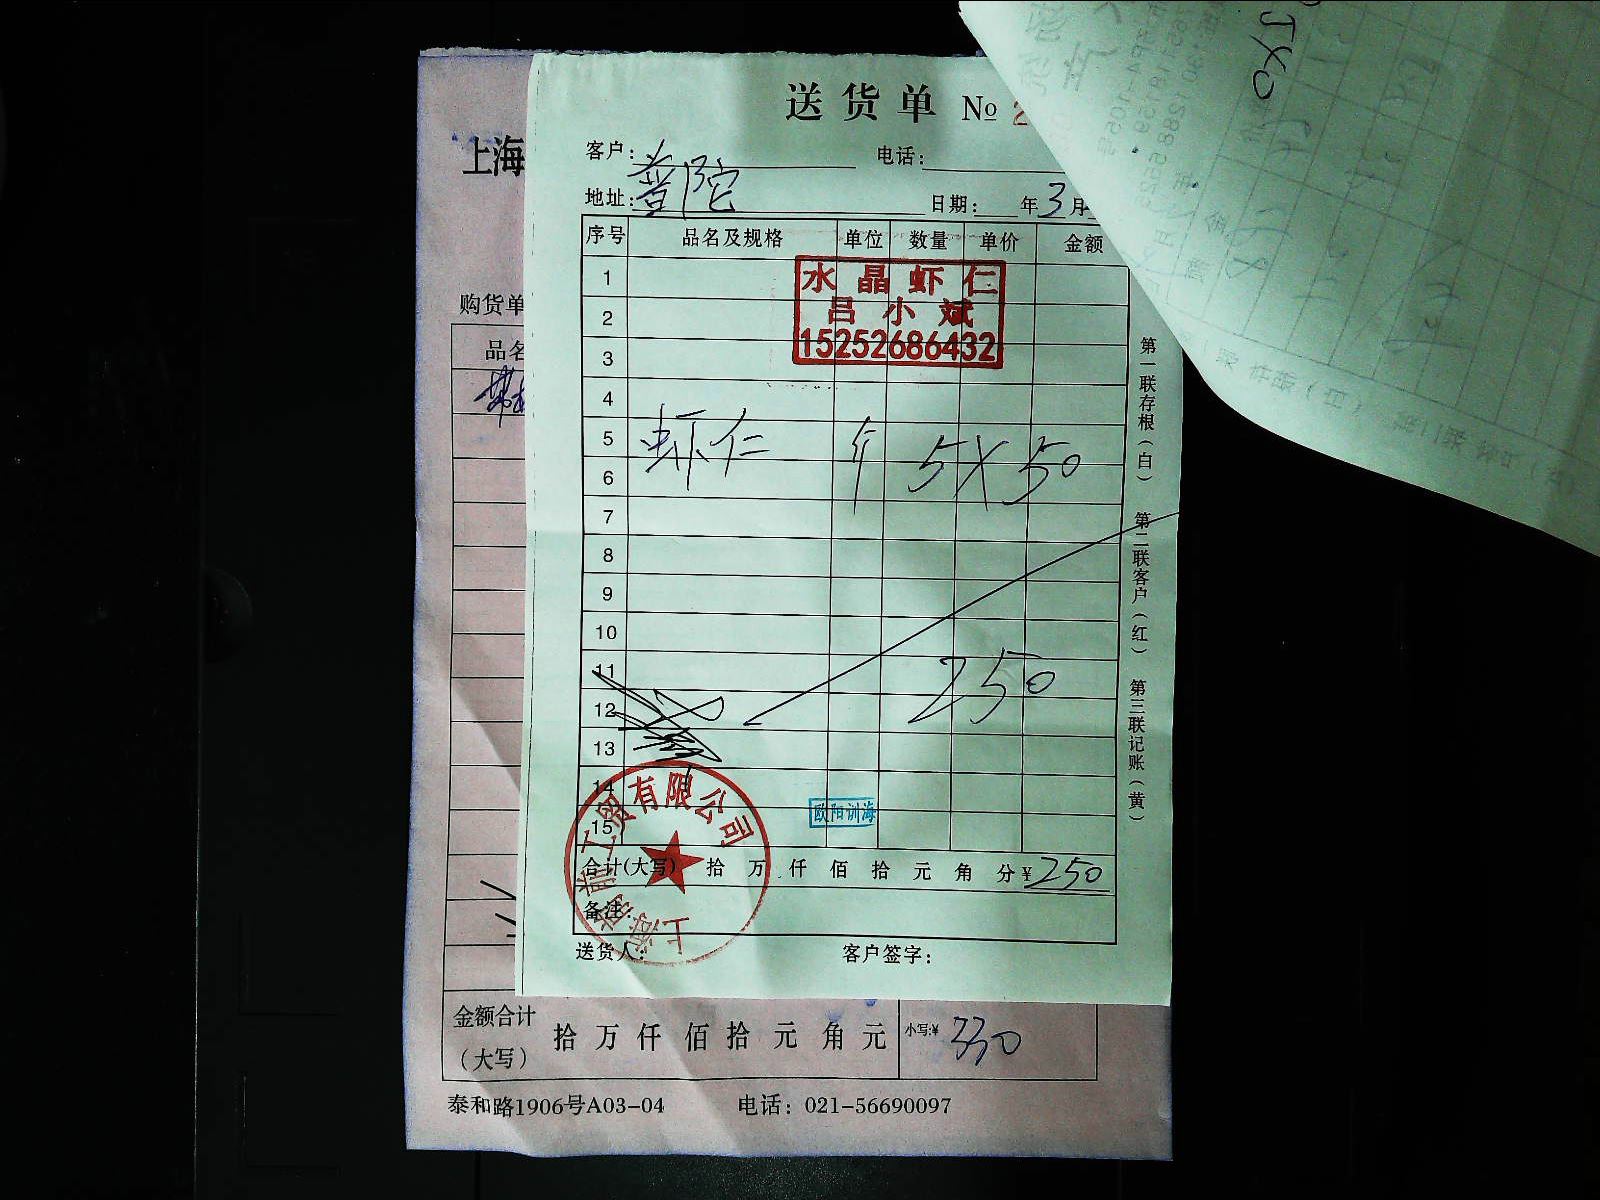 送货单 №2
客户: 电话:
地址: 普陀 日期: 年3月
序号 品名及规格 单位 数量 单价 金额
1
2
3
4
5 虾仁 斤 5×50
6
7
8
9
10
11 250
12
13
14
15
水晶虾仁
吕小斌
15252686432
欧阳训海
工贸有限公司
上海
合计(大写) 拾 万 仟 佰 拾 元 角 分 ¥250
备注:
送货人: 客户签字:
第一联存根(白) 第二联客户(红) 第三联记账(黄)
上海
购货单
品名
金额合计
(大写) 拾 万 仟 佰 拾 元 角 元 小写:¥ 330
泰和路1906号A03-04 电话: 021-56690097